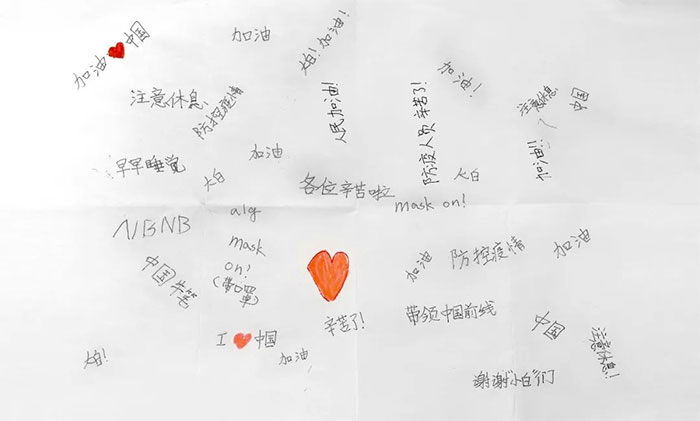 加油❤中国
加油
大白!加油!
人民加油!
防疫人员 辛苦了!
加油!
注意休息
中国
加油!!
注意休息
防控疫情
早早睡觉
大白
加油
各位辛苦啦
大白
mask on!
NBNB
mask
on!
(带口罩)
中国牛笔
加油
防控疫情
加油
辛苦了!
带领中国前线
中国
注意休息!
I❤中国
加油
大白!
谢谢“小白”们